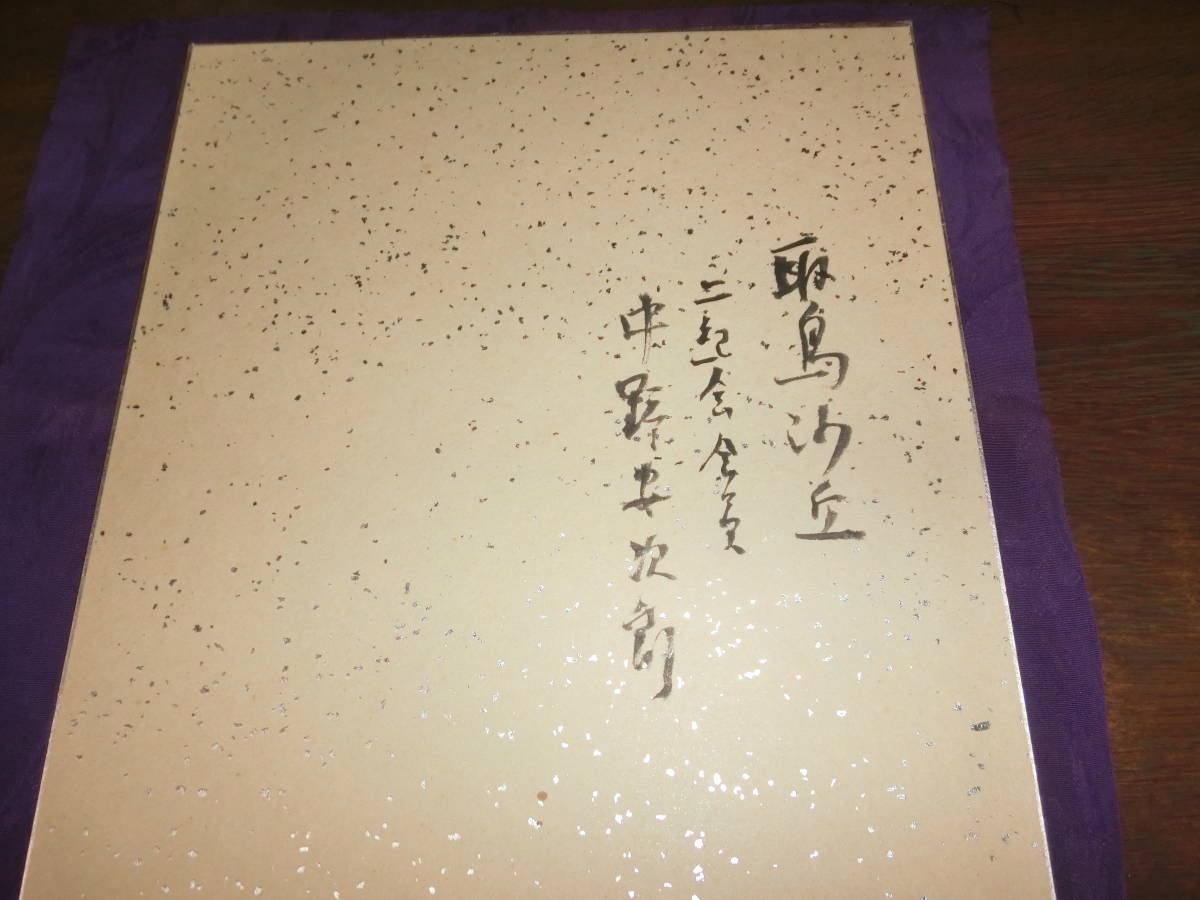 取鳥沙丘
二紀会会員
中野安次郎